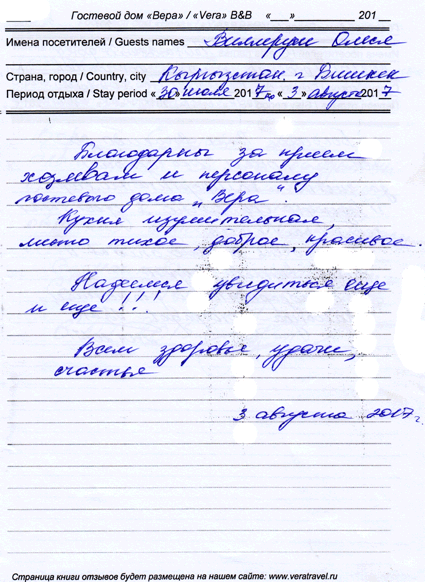 Гостевой дом «Вера» / «Vera» B&B «___»____________201__
Имена посетителей / Guests names Олеся
Страна, город / Country, city Кыргызстан, г. Бишкек
Период отдыха / Stay period «30» июля 2017 по «3» августа 2017
Благодарны за прием
хозяевам и персоналу
гостевого дома „Вера".
Кухня изумительная,
место тихое, доброе, красивое.
Надеемся увидиться еще
и еще !!!
Всем здоровье, удачи,
счастья
3 августа 2017 г.
Страница книги отзывов будет размещена на нашем сайте: www.veratravel.ru